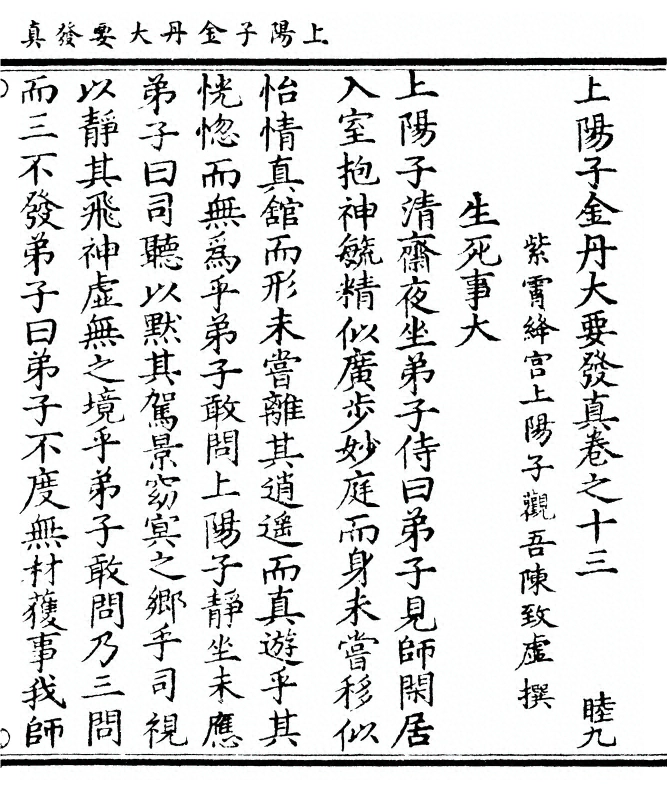 上陽子金丹大要發真
上陽子金丹大要發真卷之十三 睦九
紫霄絳宮上陽子觀吾陳致虛撰
生死事大
上陽子清齋夜坐弟子侍曰弟子見師閑居
入室抱神毓精似廣步妙庭而身未嘗移似
怡情真舘而形未嘗離其逍遥而真遊乎其
恍惚而無爲乎弟子敢問上陽子靜坐未應
弟子曰司聽以默其駕景窈冥之鄉乎司視
以靜其飛神虛無之境乎弟子敢問乃三問
而三不發弟子曰弟子不度無材獲事我師